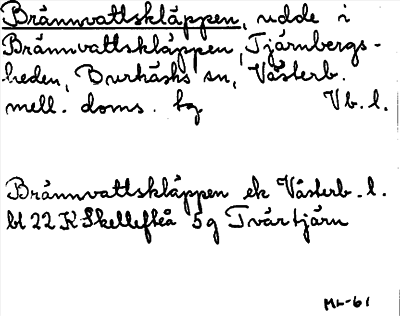 Brännvattskläppen, udde i
Brännvattskläppen, Tjärnbergs-
heden, Burträsks sn, Västerb.
mell. doms. bg Vb. l.
Brännvattskläppen ek Västerb. l.
bl 22 K Skellefteå 5g Tvärtjärn
ML-61